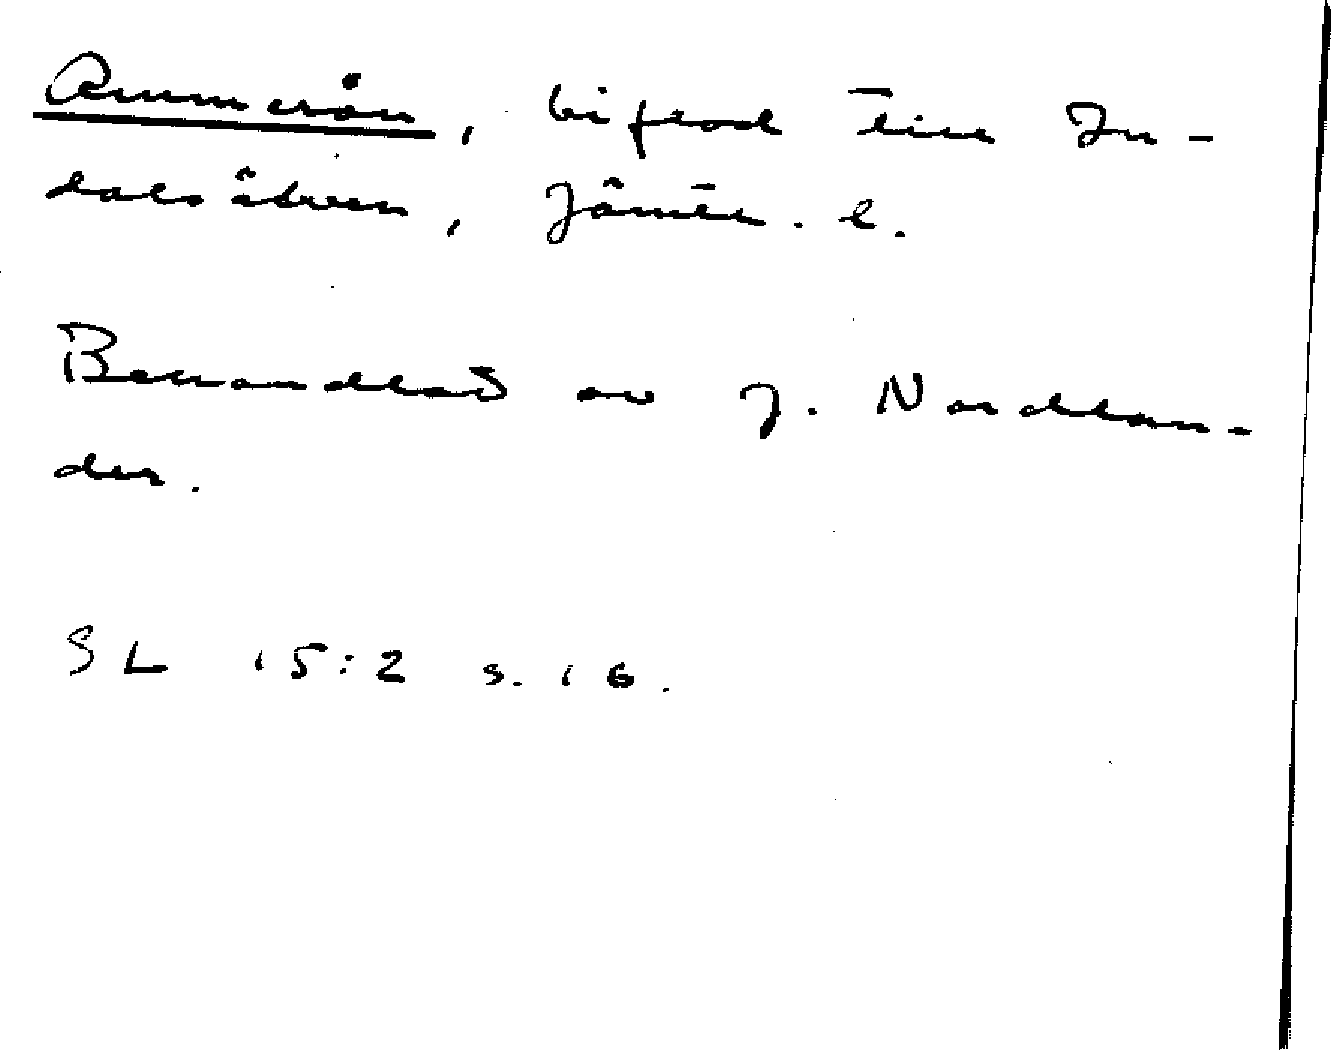 Ammerån, biflod till In-
dalsälven, Jämtl. l.
Behandlad av J. Nordlan-
der.
SL 15:2 s. 16.